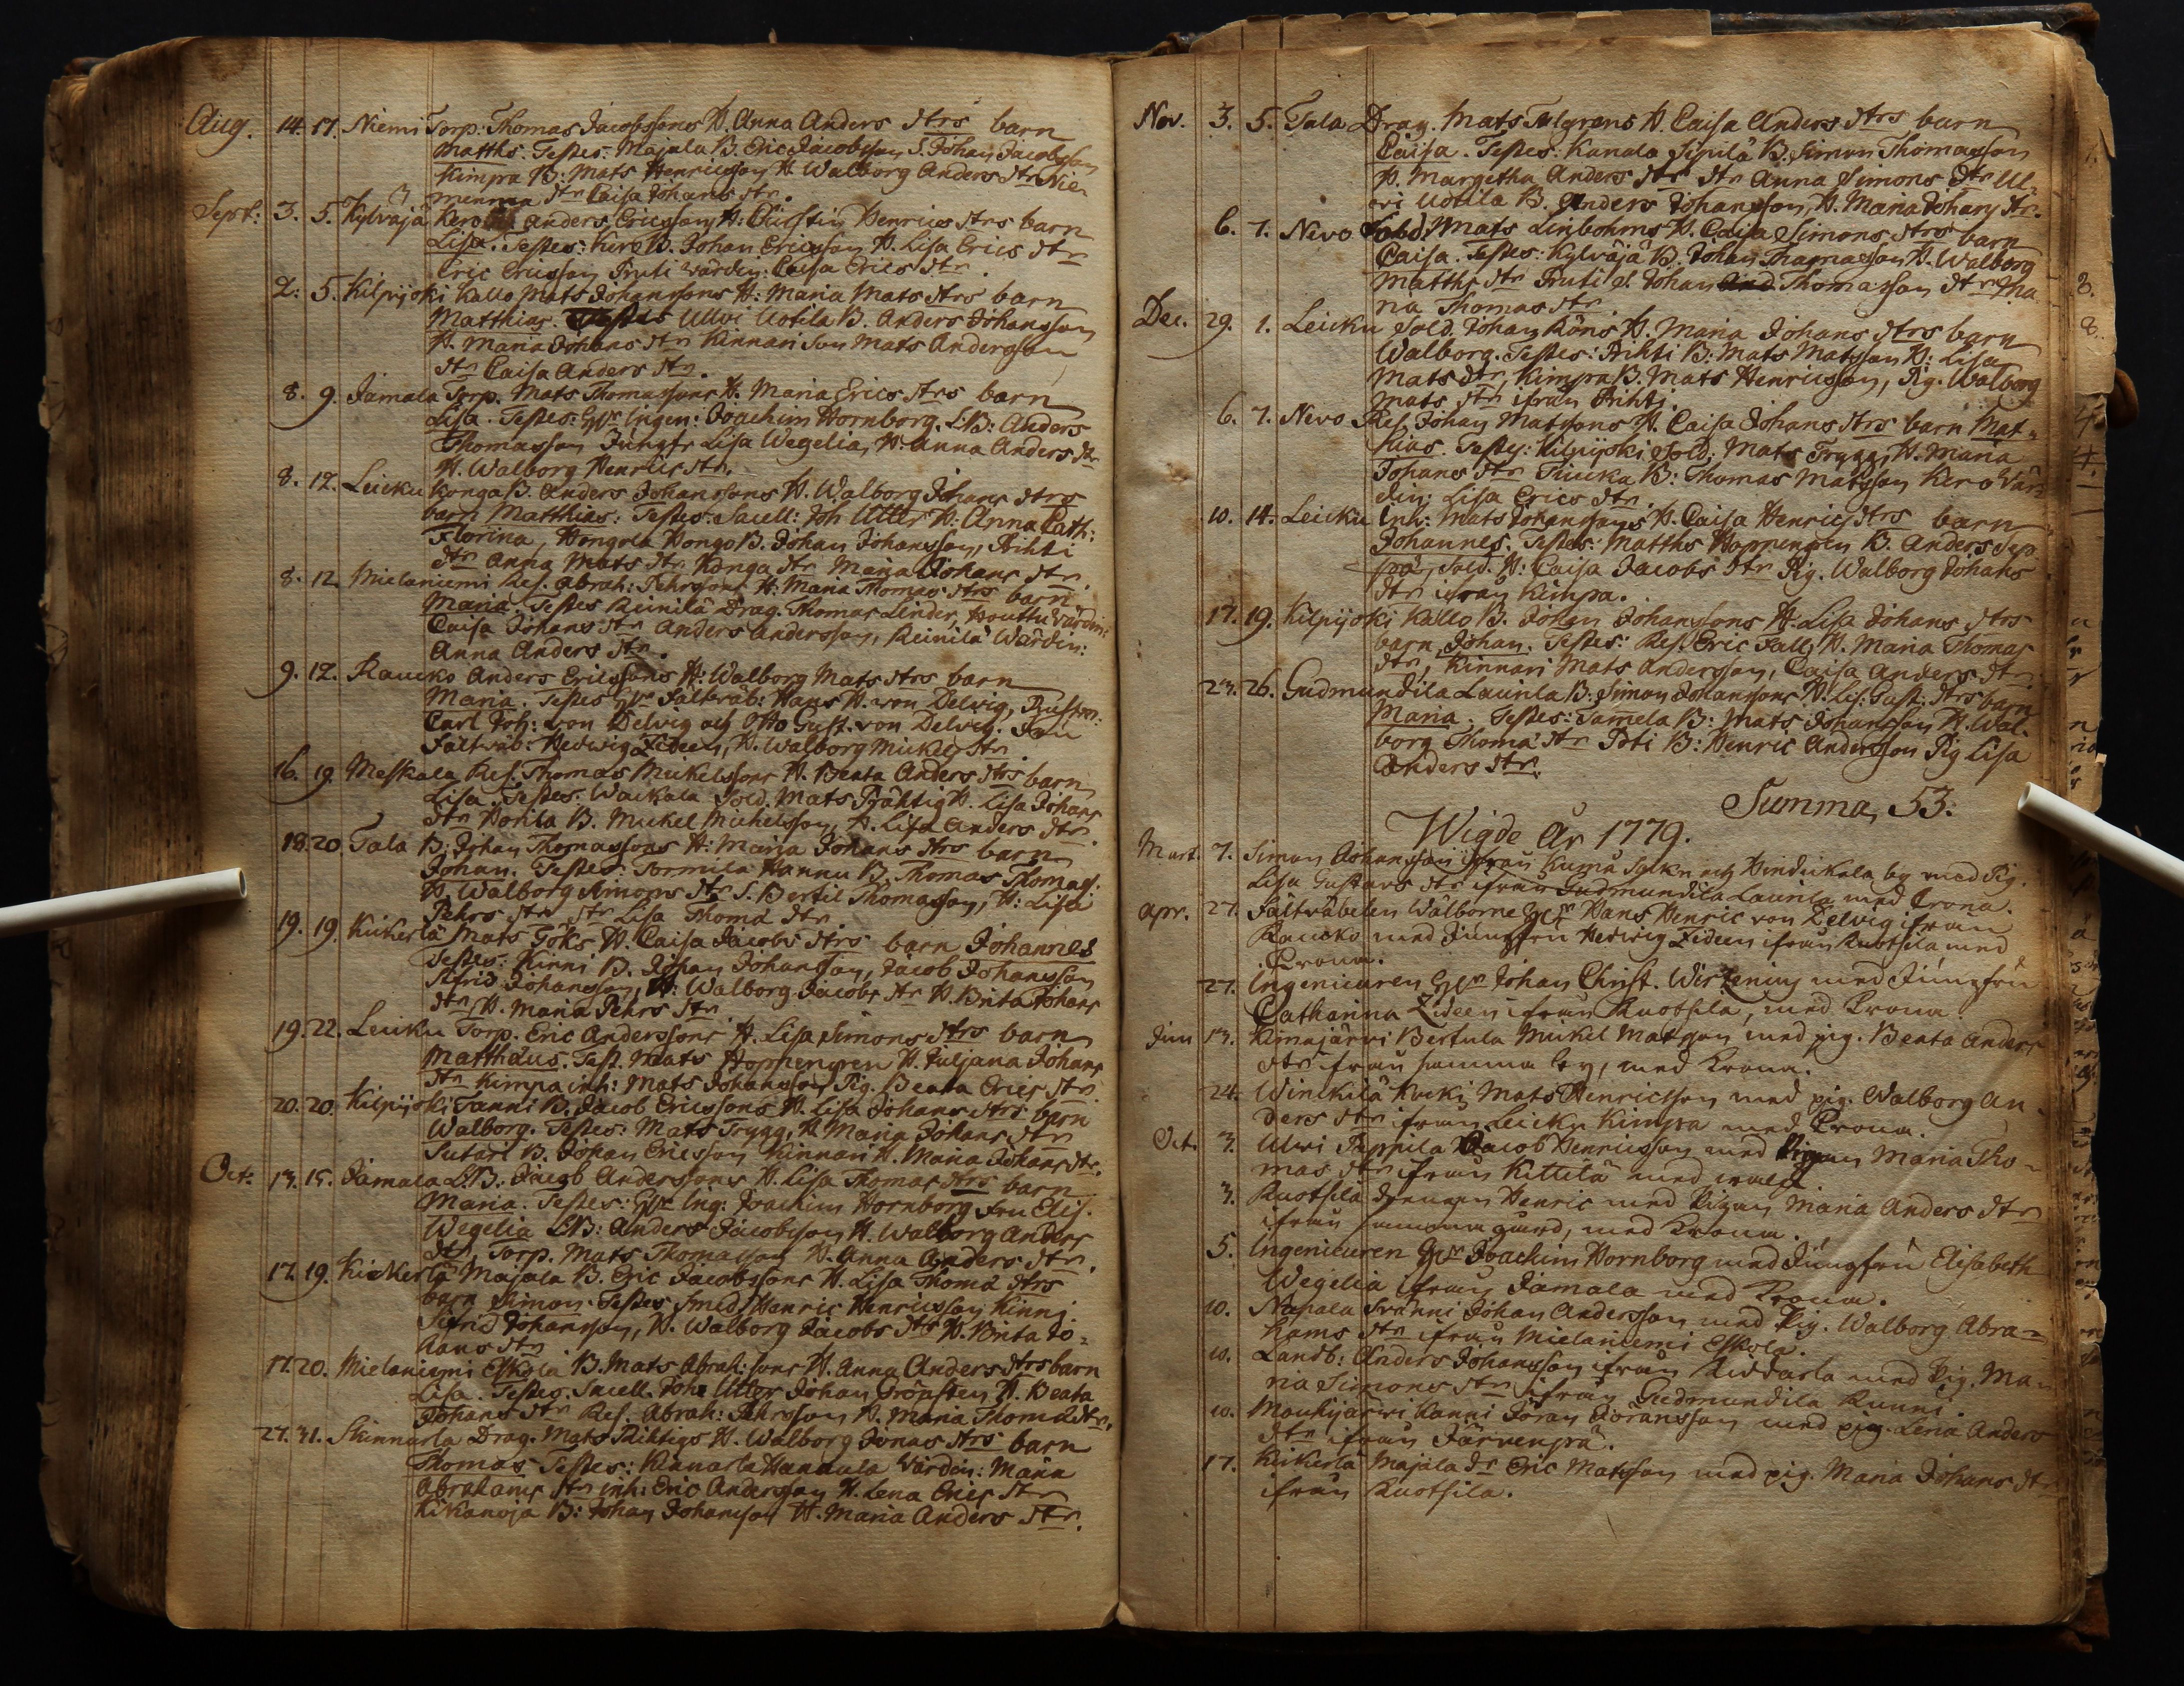 Aug. 14. 17. Niemi Torp: Thomas Jacobssons H. Anna Anders dtrs barn
Matths. Testes: Majala B. Eric Jacobsson S. Johan Jacobsson
Kimpa B: Mats Henricsson H. Walborg Anders dtr Nie
menmaa dtr Caisa Johans dtr.
Sept: 3. 5. Kylväjä Kero Anders Ericsson H: Christin Henrics dtrs barn
Lisa. Testes: Kero B. Johan Ericsson H. Lisa Erics dtr
Eric Ericsson Pruti värdin: Caisa Erics dtr.
2. 5. Kilpijoki Kallo Mats Johanssons H: Maria Mats dtrs barn
Matthias. Testes Ullvi Uotila B. Anders Johansson
H. Maria Johans dtr Kinnari Son Mats Andersson
dtr Caisa Anders dtr.
8. 9. Jamala Torp. Mats Thomassons H. Maria Erics dtrs barn
Lisa. Testes: Hr Ingen: Joachim Hornborg. LB: Anders
Thomasson Jungfr Lisa Wegelia, H. Anna Anders dtr
H. Walborg Henrics dtr.
8. 12. Leicku Konga B. Anders Johanssons H. Walborg Johans dtrs
barn Matthias: Testes: Sacell: Joh Utter H. Anna Cath:
Florina, Hongola Hongo B. Johan Johansson, Prihti
dtr Anna Mats dtr Konga dtr Maria Johans dtr.
8. 12. Mielaniemi Ref. Abrah: Pehrssons H: Maria Thomas dtrs barn
Maria. Testes Reinilä Drag. Thomas Linder, Houttu värdin:
Caisa Johans dtr Anders Andersson, Reinilä Wärdin:
Anna Anders dtr.
9. 12. Raucko Anders Ericssons H: Walborg Mats dtrs barn
Maria. Testes Hr Fältväb: Hans H. von Delwig, Rustm:
Carl Joh: von Delwig och Otto Gust. von Delwig. Fru
Fältväb: Hedwig Zideen, H. Walborg Mickels dtr
16. 19. Meskala Ref. Thomas Mickelssons H. Beata Anders dtrs barn
Lisa. Testes: Wackala Sold. Mats Präktig H. Lisa Johans
dtr Horila B. Mickel Michelsson, H. Lisa Anders dtr.
18. 20. Tala B: Johan Thomassons H: Maria Johans dtrs barn
Johan. Testes: Tormila Hannu B. Thomas Thomass:
H. Walborg Simons dtr S. Bertil Thomasson, H: Lisa
Pehrs dtr dtr Lisa Thoma dtr.
19. 19. Kiikerlä Mats Göks H. Caisa Jacobs dtrs barn Johannes
Testes: Kinni B. Johan Johansson, Jacob Johansson
Sifrid Johansson, H: Walborg Jacobs dtr H. Brita Johans
dtr H. Maria Pehrs dtr
19. 22. Leicku Torp. Eric Anderssons H. Lisa Simons dtrs barn
Matthäus. Test. Mats Hoppengren H. Juljana Johans
dtr Kimpa inh: Mats Johansson, Pig. Beata Erics dtr.
20. 20. Kilpijoki Tanni B. Jacob Ericssons H. Lisa Johans dtrs barn
Walborg. Testes: Mats Trygg, H Maria Johans dtr
Sutari B. Johan Ericsson Kinnari H. Maria Johans dtr.
Oct. 13. 15. Jamala LB: Jacob Anderssons H. Lisa Thomas dtrs barn
Maria. Testes: Hr Ing: Joachim Hornborg Fru Elis.
Wegelia LB: Anders Jacobsson H. Walborg Anders
dtr, Torp. Mats Thomasson H. Anna Anders dtr.
17. 19. Kiekerlä Majala B. Eric Jacobssons H. Lisa Thoma dtrs
barn Simon. Testes Smed Henric Henricsson Kinni
Sifrid Johansson, H. Walborg Jacobs dtr H. Brita Jo-
hans dtr
17. 20. Mielaniemi Eskola B. Mats Abrah:sons H. Anna Anders dtrs barn
Lisa. Testes. Sacell. Joh: Utter Johan Prosten H. Beata
Johans dtr Ref. Abrah: Pehrsson H. Maria Thoma dtr.
27. 31. Skinnarla Drag. Mats Riktigs H. Walborg Jonas dtrs barn
Thomas Testes: Kinnarla Hannula Värdin: Maria
Abrahams dtr inh: Eric Andersson H. Lena Erics dtr
Kikanoja B: Johan Johansson H. Maria Anders dtr.
Nov. 3. 5. Tala Drag. Mats Talgrens H. Caisa Anders dtrs barn
Caisa. Testes: Kanala Sipilä B. Simon Thomasson
H. Margetha Anders dtr dtr Anna Simons dtr Ul-
vi Uotila B. Anders Johansson, H. Maria Johans dtr.
6. 7. Nevo Sold. Mats Linbohms H. Caisa Simons dtrs barn
Caisa. Testes: Kylväjä B. Johan Thomasson H. Walborg
Matths dtr Pruti S. Johan And Thomasson dtr Ma
ria Thomas dtr.
Dec. 29. 1. Leicku Sold. Johan Röns H. Maria Johans dtrs barn
Walborg. Testes: Prihti B: Mats Matsson H: Lisa
Mats dtr, Kimpa B. Mats Henricsson, Pig. Walborg
Mats dtr ifrån Prihti.
6. 7. Nevo Ref. Johan Matssons H. Caisa Johans dtrs barn Mat-
hias. Testes: Kilpijoki Sold: Mats Trygg, H. Maria
Johans dtr Thucka B: Thomas Matsson Kero Vär-
din: Lisa Erics dtr.
10. 14. Leicku Inh: Mats Johanssons H. Caisa Henrics dtrs barn
Johannes. Testes: Matths Hoppengren B. Anders Sep
Sold. H: Caisa Jacobs dtr Pig. Walborg Johans
dtr ifrån Kimpa.
17. 19. Kilpijoki Kallo B. Johan Johanssons H. Lisa Johans dtrs
barn Johan. Testes: Ref. Eric Fall, H. Maria Thomas
dtr, Kinnari Mats Andersson, Caisa Anders dtr.
23. 26. Gudmundila Laurila B: Simon Johanssons H. Lis: Gust: dtrs barn
Maria. Testes: Samela B: Mats Johansson H. Wal-
borg Thoma dtr Poti B: Henric Andersson Pig Lisa
Anders dtr.
Summa, 53.
Wigde År 1779.
Mart. 7. Simon Johansson ifrån Kumå Sokn och Hindickala by med Pig.
Lisa Gustavs dtr ifrån Gudmundila Laurila med Crona.
apr. 27. Fältväbelen Wälborne Hr Hans Henric von Delvig ifrån
Raucko med Jungfru Hedwig Zideen ifrån Ruotsila med
Crona.
27. Ingenieuren Hr Johan Christ. Wirzenius med Jungfru
Catharina Zideen ifrån Ruotsila, med Crona.
Jun 13. Kimajärvi Bertula Mickel Matsson med pig. Beata Anders
dtr ifrån samma by, med Crona.
24. Winckilä Kuki Mats Henricsson med pig. Walborg An
ders dtr ifrån Leicku Kimpa med Crona.
Oct. 3. Ulvi Peppila Jacob Henricsson med Pigan Maria Tho-
mas dtr ifrån Kittilä med
3. Ruotsila drengen Henric med Pigan Maria Anders dtr
ifrån samma gård, med Crona.
5. Ingenieuren Hr Joachim Hornborg med Jungfru Elisabeth
Wegelia ifrån Jamala med Crona.
10. Napala Svänni Johan Andersson med Pig. Walborg Abra-
hams dtr ifrån Mielaniemi Eskola.
10. Landb: Anders Johansson ifrån Riddarla med Pig. Ma
ria Simons dtr ifrån Gudmundila Runni.
10. Mouhijärvi Hanni Jöran Jöransson med pig. Lena Anders
dtr ifrån Järvenpä.
17. Keikerlä Majala dr Eric Matsson med pig. Maria Johans dtr
ifrån Ruotsila.